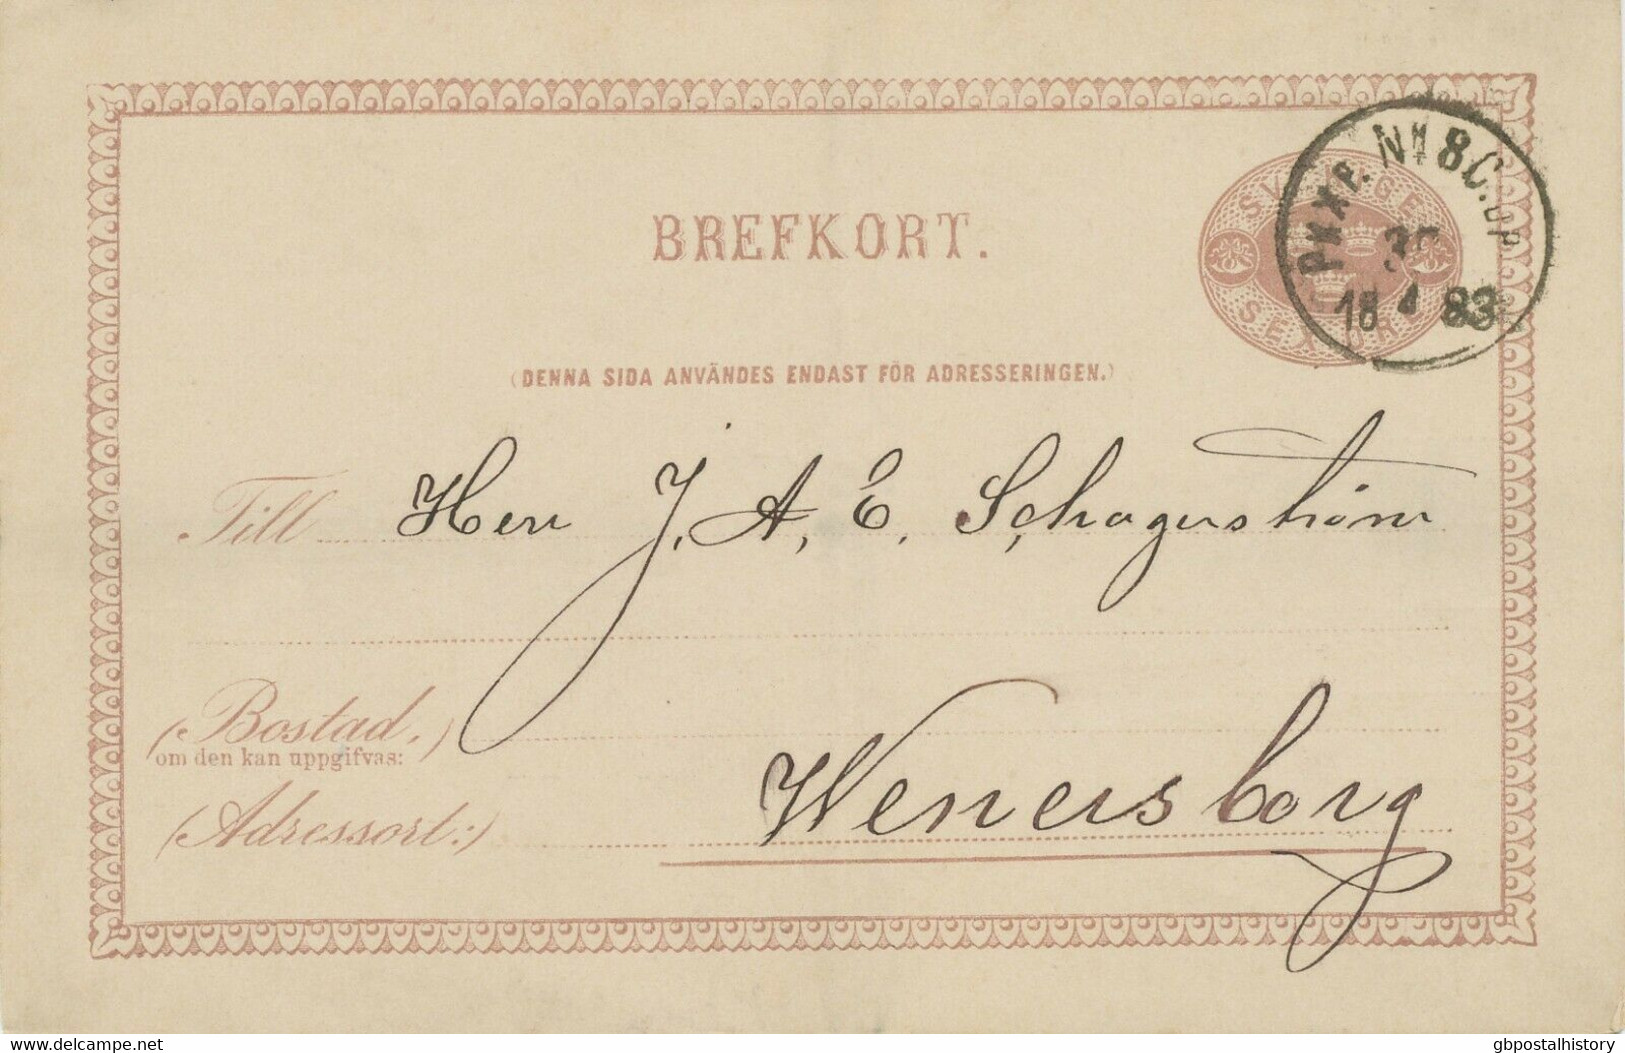 BREFKORT.
SVERIGE
SEX ÖRE
PKXP. No 8 C. UP
30
18 4 83
(DENNA SIDA ANVÄNDES ENDAST FÖR ADRESSERINGEN.)
Till Herr J. A. E. Schagerström
(Bostad,)
om den kan uppgifvas:
(Adressort:) Wenersborg
www.delcampe.net
gbpostalhistory